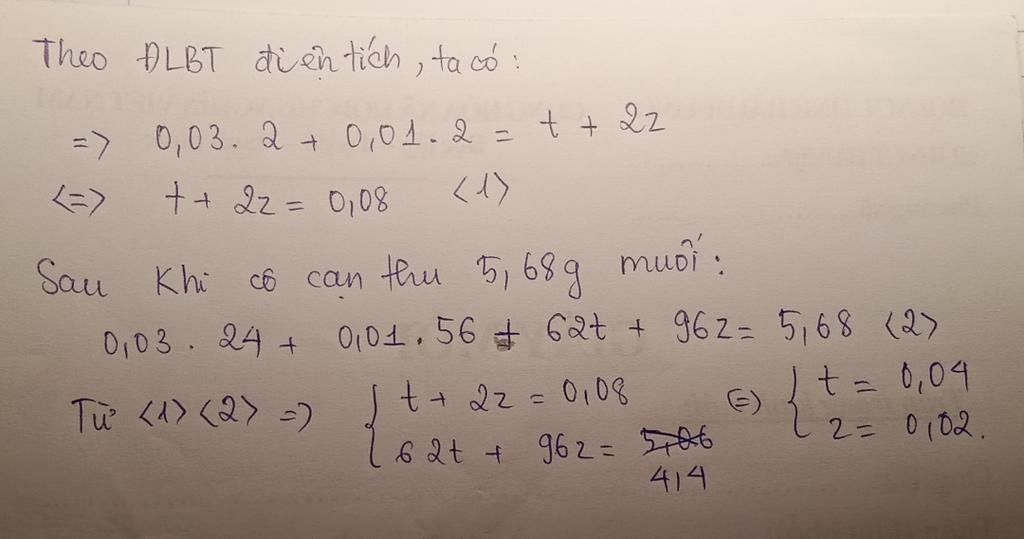 Theo ĐLBT điện tích, ta có:
=> 0,03. 2 + 0,01. 2 = t + 2z
<=> t + 2z = 0,08 <1>
Sau Khi cô cạn thu 5,68g muối:
0,03. 24 + 0,01. 56 + 62t + 96z = 5,68 <2>
Từ <1> <2> => { t + 2z = 0,08 (=) { t = 0,04
62t + 96z = 5,06 z = 0,02.
4,4